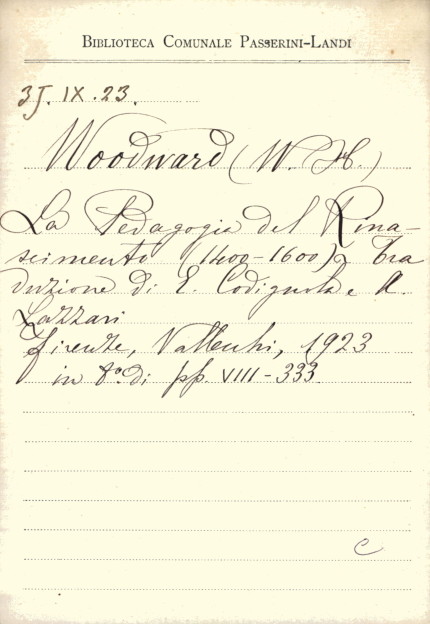 BIBLIOTECA COMUNALE PASSERINI-LANDI
35. IX. 23.
Woodward (W. H.)
La Pedagogia del Rina-
scimento (1400-1600), Tra
duzione di E. Codignola e A.
Lazzari
Firenze, Vallecchi, 1923
in 8º. di pp. VIII-333
C